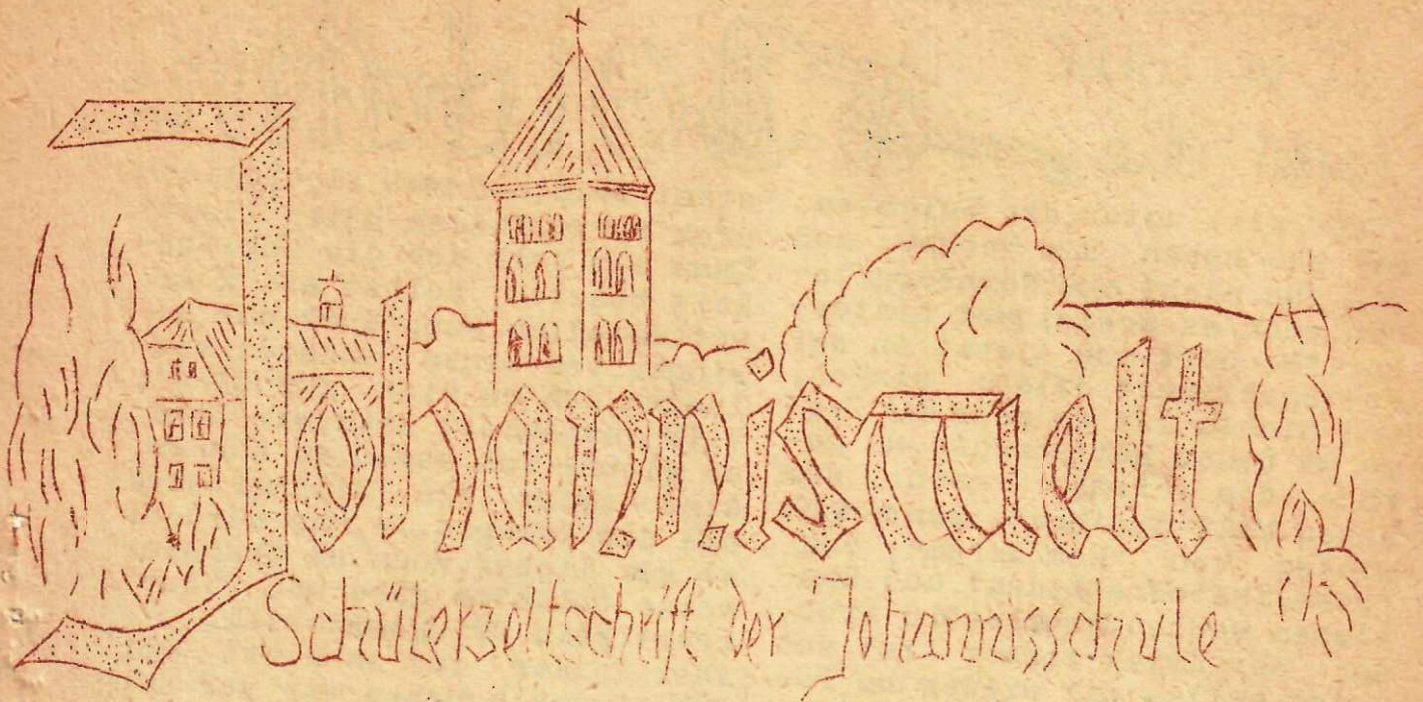 Johanniswelt
Schülerzeitschrift der Johannisschule